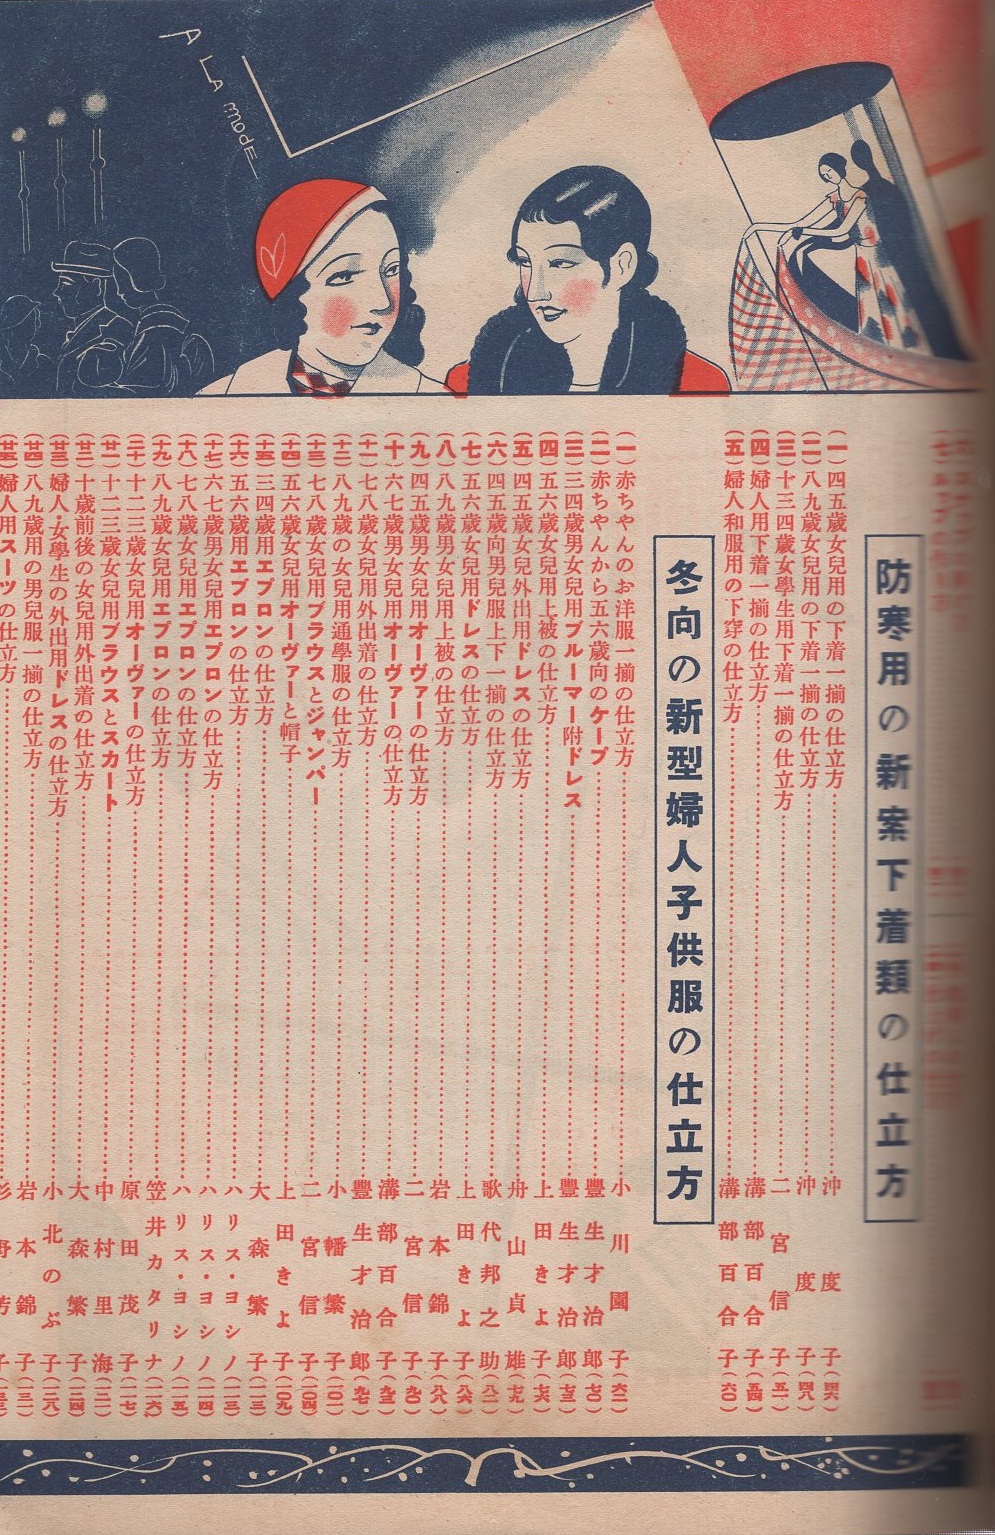 A LA mode
防寒用の新案下着類の仕立方
(一) 四五歳女兒用の下着一揃の仕立方 沖度子(四六)
(二) 八九歳女兒用の下着一揃の仕立方 沖度子(四九)
(三) 十三四歳女學生用下着一揃の仕立方 二宮信子(五一)
(四) 婦人用下着一揃の仕立方 溝部百合子(五四)
(五) 婦人和服用の下穿の仕立方 溝部百合子(六〇)
冬向の新型婦人子供服の仕立方
(一) 赤ちやんのお洋服一揃の仕立方 小川園子(六二)
(二) 赤ちやんから五六歳向のケープ 豐生才治郎(七〇)
(三) 三四歳男女兒用ブルーマー附ドレス 豐生才治郎(七三)
(四) 五六歳女兒用上被の仕立方 上田きよ子(七六)
(五) 四五歳女兒外出用ドレスの仕立方 舟山貞雄(七九)
(六) 四五歳向男兒服上下一揃の仕立方 歌代邦之助(八二)
(七) 五六歳女兒用ドレスの仕立方 上田きよ子(八六)
(八) 八九歳男女兒用上被の仕立方 岩本錦子(八八)
(九) 四五歳男女兒用オーヴァーの仕立方 二宮信子(九〇)
(十) 六七歳男女兒用オーヴァーの仕立方 溝部百合子(九三)
(十一) 七八歳女兒用外出着の仕立方 豐生才治郎(九七)
(十二) 八九歳の女兒用通學服の仕立方 小幡繁子(一〇一)
(十三) 七八歳女兒用ブラウスとジャンパー 二宮信子(一〇四)
(十四) 五六歳女兒用オーヴァーと帽子 上田きよ子(一〇九)
(十五) 三四歳用エプロンの仕立方 大森繁子(一一三)
(十六) 五六歳用エプロンの仕立方 ハリス・ヨシノ(一一三)
(十七) 六七歳男女兒用エプロンの仕立方 ハリス・ヨシノ(一一四)
(十八) 七八歳女兒用エプロンの仕立方 ハリス・ヨシノ(一一五)
(十九) 八九歳女兒用エプロンの仕立方 笠井カタリナ(一一六)
(二十) 十二三歳女兒用オーヴァーの仕立方 原田茂子(一一七)
(廿一) 十二三歳女兒用ブラウスとスカート 中村里海(一二一)
(廿二) 十歳前後の女兒用外出着の仕立方 大森繁子(一二四)
(廿三) 婦人・女學生の外出用ドレスの仕立方 小北のぶ子(一二八)
(廿四) 八九歳用の男兒服一揃の仕立方 岩本錦子(一三一)
(廿五) 婦人用スーツの仕立方